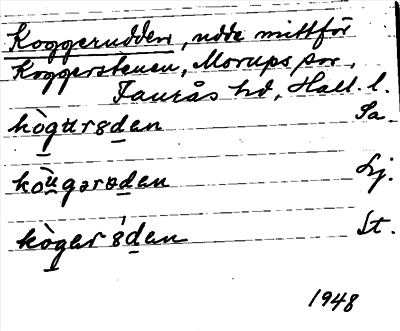 Koggerudden, udde mittför
Koggerstenen, Morups sn,
Faurås hd, Hall. l.
kògɑrsdan Sa
kòu̯gərɵdən Lj.
kògər ɵ́dən St.
1948